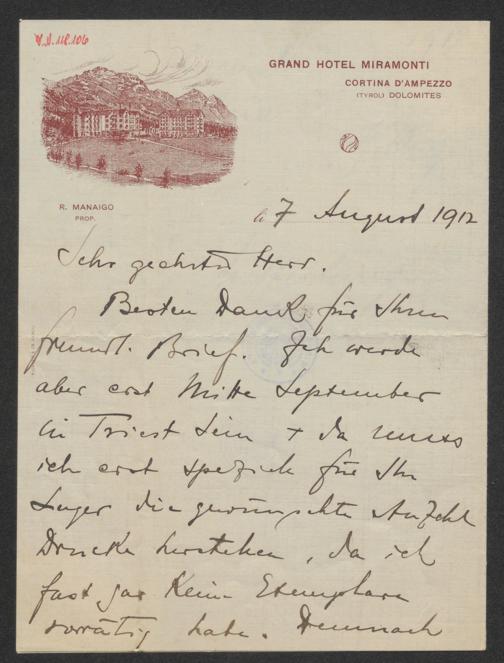 V.A. 118.106
GRAND HOTEL MIRAMONTI
CORTINA D'AMPEZZO
(TYROL) DOLOMITES
R. MANAIGO
PROP.
7 August 1912
Sehr geehrter Herr.
Besten Dank für Ihren
freundl. Brief. Ich werde
aber erst Mitte September
in Triest sein + da muss
ich erst speziell für Ihr
Lager die gewünschte Anzahl
Drucke herstellen, da ich
fast gar keine Exemplare
vorrätig habe. Demnach